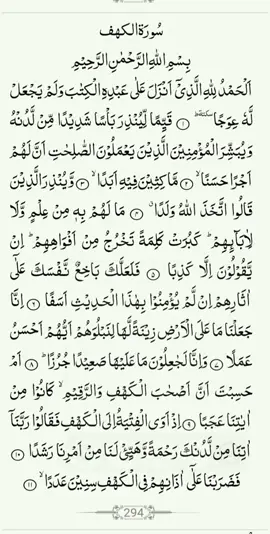 سُورَةُ الْكَهْفِ
بِسْمِ اللّٰهِ الرَّحْمٰنِ الرَّحِيْمِ
اَلْحَمْدُ لِلّٰهِ الَّذِيْۤ اَنْزَلَ عَلٰى عَبْدِهِ الْكِتٰبَ وَلَمْ يَجْعَلْ
لَّهٗ عِوَجًا ؕسكتة ۱ قَيِّمًا لِّيُنْذِرَ بَاْسًا شَدِيْدًا مِّنْ لَّدُنْهُ
وَيُبَشِّرَ الْمُؤْمِنِيْنَ الَّذِيْنَ يَعْمَلُوْنَ الصّٰلِحٰتِ اَنَّ لَهُمْ
اَجْرًا حَسَنًا ۙ ۲ مَّاكِثِيْنَ فِيْهِ اَبَدًا ۙ ۳ وَّيُنْذِرَ الَّذِيْنَ
قَالُوا اتَّخَذَ اللّٰهُ وَلَدًا ۗ ۴ مَا لَهُمْ بِهٖ مِنْ عِلْمٍ وَّلَا
لِاٰبَآىِٕهِمْ ؕ كَبُرَتْ كَلِمَةً تَخْرُجُ مِنْ اَفْوَاهِهِمْ ؕ اِنْ
يَّقُوْلُوْنَ اِلَّا كَذِبًا ۵ فَلَعَلَّكَ بَاخِعٌ نَّفْسَكَ عَلٰۤى
اٰثَارِهِمْ اِنْ لَّمْ يُؤْمِنُوْا بِهٰذَا الْحَدِيْثِ اَسَفًا ۶ اِنَّا
جَعَلْنَا مَا عَلَى الْاَرْضِ زِيْنَةً لَّهَا لِنَبْلُوَهُمْ اَيُّهُمْ اَحْسَنُ
عَمَلًا ۷ وَاِنَّا لَجٰعِلُوْنَ مَا عَلَيْهَا صَعِيْدًا جُرُزًا ؕ ۸ اَمْ
حَسِبْتَ اَنَّ اَصْحٰبَ الْكَهْفِ وَالرَّقِيْمِ ۙ كَانُوْا مِنْ
اٰيٰتِنَا عَجَبًا ۹ اِذْ اَوَى الْفِتْيَةُ اِلَى الْكَهْفِ فَقَالُوْا رَبَّنَاۤ
اٰتِنَا مِنْ لَّدُنْكَ رَحْمَةً وَّهَيِّئْ لَنَا مِنْ اَمْرِنَا رَشَدًا ۱۰
فَضَرَبْنَا عَلٰۤى اٰذَانِهِمْ فِى الْكَهْفِ سِنِيْنَ عَدَدًا ۙ ۱۱
294